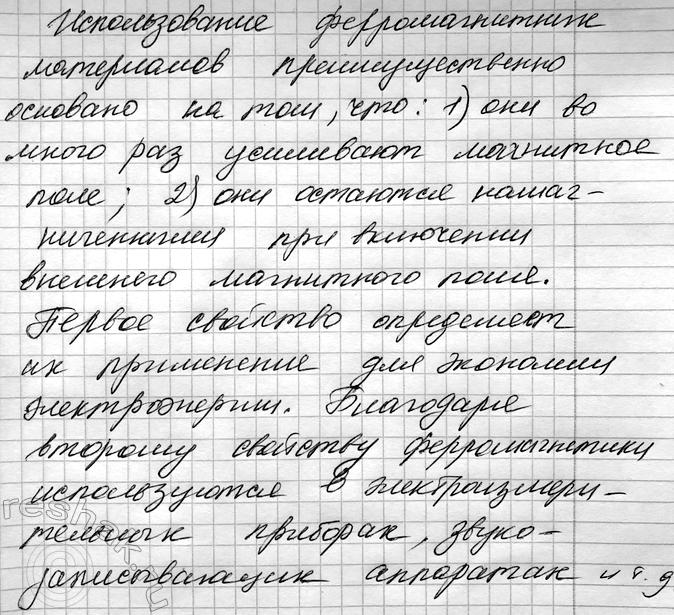 Использование ферромагнитних
материалов преимущественно
основано на том, что: 1) они во
много раз усиливают магнитное
поле; 2) они остаются намаг-
ниченными при включении
внешнего магнитного поля.
Первое свойство определяет
их применение для экономии
электроэнергии. Благодаря
второму свойству ферромагнетики
используются в электроизмери-
тельных приборах, звуко-
записывающих аппаратах и т. д
reshak.ru